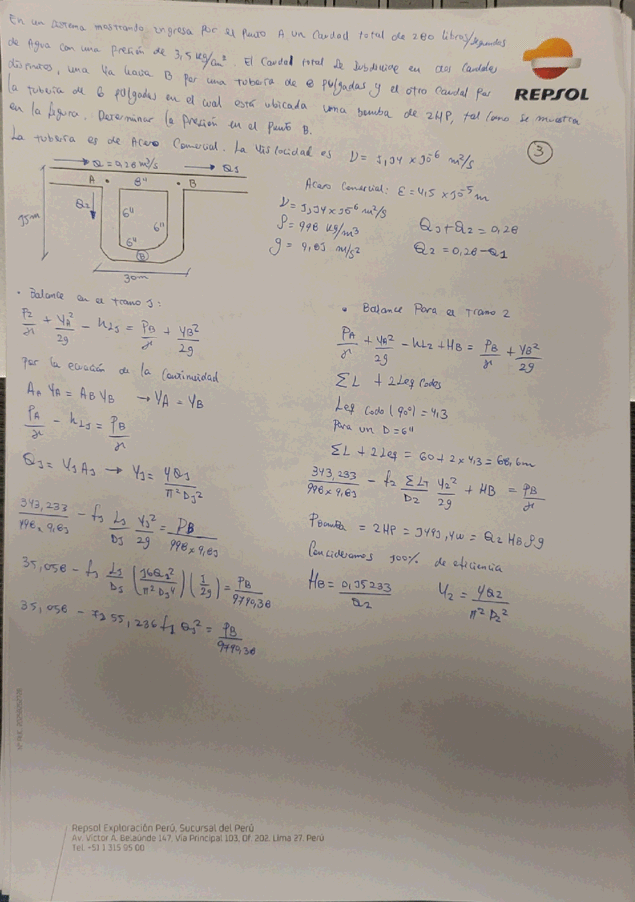 En un sistema mostrando ingresa por el Punto A un Caudal total de 280 libras/segundos
de Agua con una presión de 3,5 kg/cm². El Caudal total se subdivide en dos Caudales
distintos, una va hacia B por una tubería de 8 pulgadas y el otro Caudal por
la tubería de 6 pulgadas en el cual está ubicada una bomba de 2HP, tal como se muestra
en la figura. Determinar la Presión en el Punto B.
La tubería es de Acero Comercial. La Viscocidad es ν = 1,14 x 10⁻⁶ m²/s
REPSOL
3
Q = 0,28 m³/s
Q1
A
8"
B
Q2
6"
6"
6"
B
15m
30m
Acero Comercial: ε = 4,5 x 10⁻⁵ m
ν = 1,14 x 10⁻⁶ m²/s
ρ = 998 kg/m³
g = 9,81 m/s²
Q1 + Q2 = 0,28
Q2 = 0,28 - Q1
• Balance en el tramo 1:
P2/γ + VA²/2g - hL1 = PB/γ + VB²/2g
Por la ecuación de la Continuidad
AA VA = AB VB → VA = VB
PA/γ - hL1 = PB/γ
Q1 = V1 A1 → V1 = 4Q1/π² D1²
343,233/998 x 9,81 - f1 L1/D1 V1²/2g = PB/998 x 9,81
35,058 - f1 L1/D1 (16Q1²/π² D1⁴) (1/2g) = PB/9790,38
PB/9790,38
• Balance Para el tramo 2
PA/γ + VA²/2g - hL2 + HB = PB/γ + VB²/2g
ΣL + 2Leq codos
Leq Codo (90°) = 4,3
Para un D = 6"
ΣL + 2Leq = 60 + 2 x 4,3 = 68,6m
343,233/998 x 9,81 - f2 ΣLT/D2 V2²/2g + HB = PB/γ
Pbomba = 2HP = 1491,4w = Q2 HB ρg
Consideramos 100% de eficiencia
HB = 0,15233/Q2
V2 = 4Q2/π² D2²
Repsol Exploración Perú, Sucursal del Perú
Av. Víctor A. Belaúnde 147, Vía Principal 103, Of. 202. Lima 27. Perú
Tel. +51 1 315 95 00